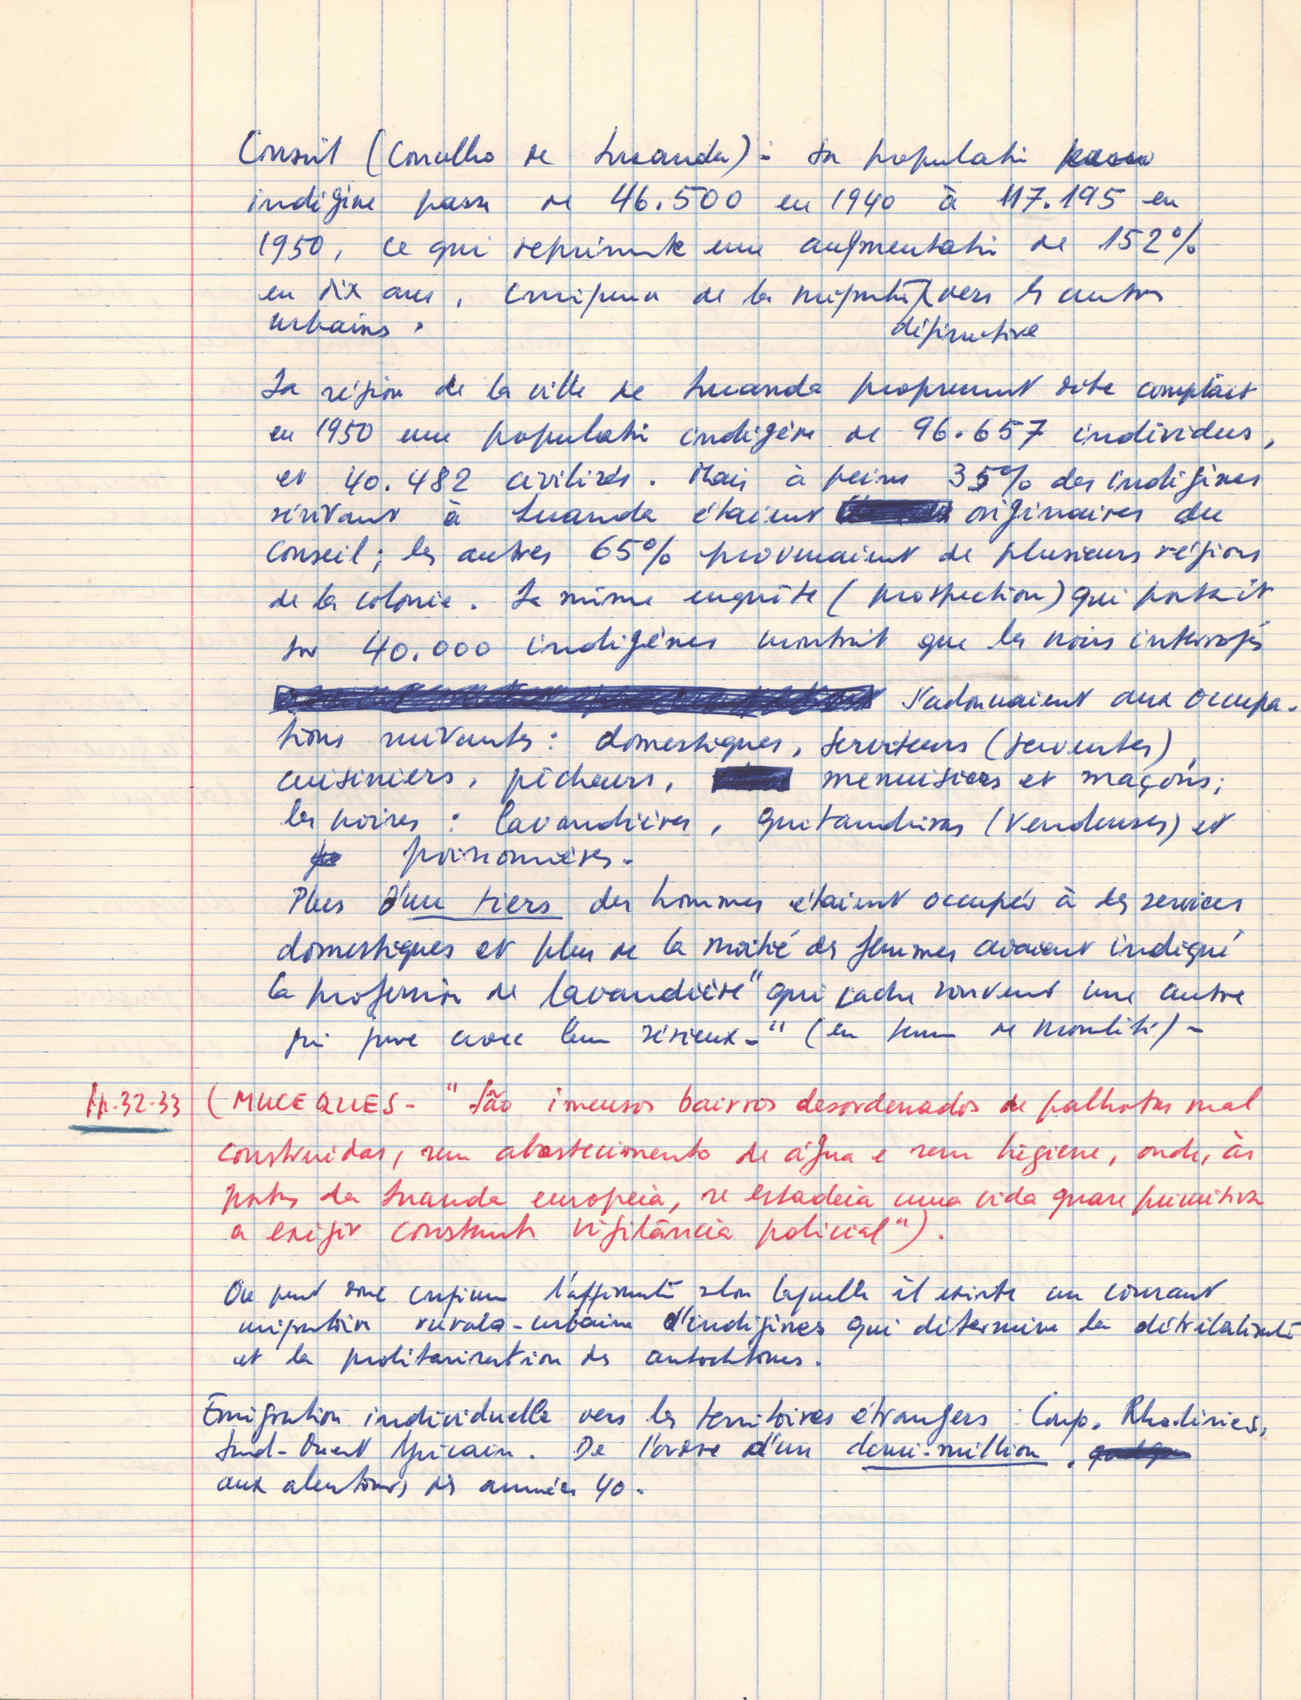 Conseil (Concelho de Luanda): La populati
indigène passe de 46.500 en 1940 à 117.195 en
1950, ce qui représente une augmentati de 152%
en dix ans, de la migrati vers les centres
urbains. définitive
La région de la ville de Luanda proprement dite comptait
en 1950 une populati indigène de 96.657 individus,
et 40.482 civilisés. Mais à peine 35% des indigènes
vivant à Luanda étaient originaires du
Conseil; les autres 65% provenaient de plusieurs régions
de la colonie. La même enquête (prospection) qui portait
sur 40.000 indigènes montrait que les noirs interrogés
s'adonnaient aux occupa-
tions suivantes: domestiques, serviteurs (serventes),
cuisiniers, pêcheurs, menuisiers et maçons;
les noires: lavandières, quitandeiras (vendeuses) et
poissonnières.
Plus d'un tiers des hommes étaient occupés à des services
domestiques et plus de la moitié des femmes avaient indiqué
la profession de lavandière "qui cache souvent une autre
(en de
pp. 32-33 (MUCEQUES - "São imensos bairros desordenados de palhotas mal
construidas, sem abastecimento de água e sem higiene, onde, às
portas da Luanda europeia, se estadeia uma vida quase primitiva
a exigir constante vigilância policial").
On peut donc l'affirmati selon laquelle il existe un courant
migratoire rurale-urbaine d'indigènes qui détermine la détribalisati
et la prolétarisation des autochtones.
Emigration individuelle vers les territoires étrangers: Congo, Rhodésies,
Sud-Ouest Africain. De l'ordre d'un demi-million,
aux alentours des années 40.